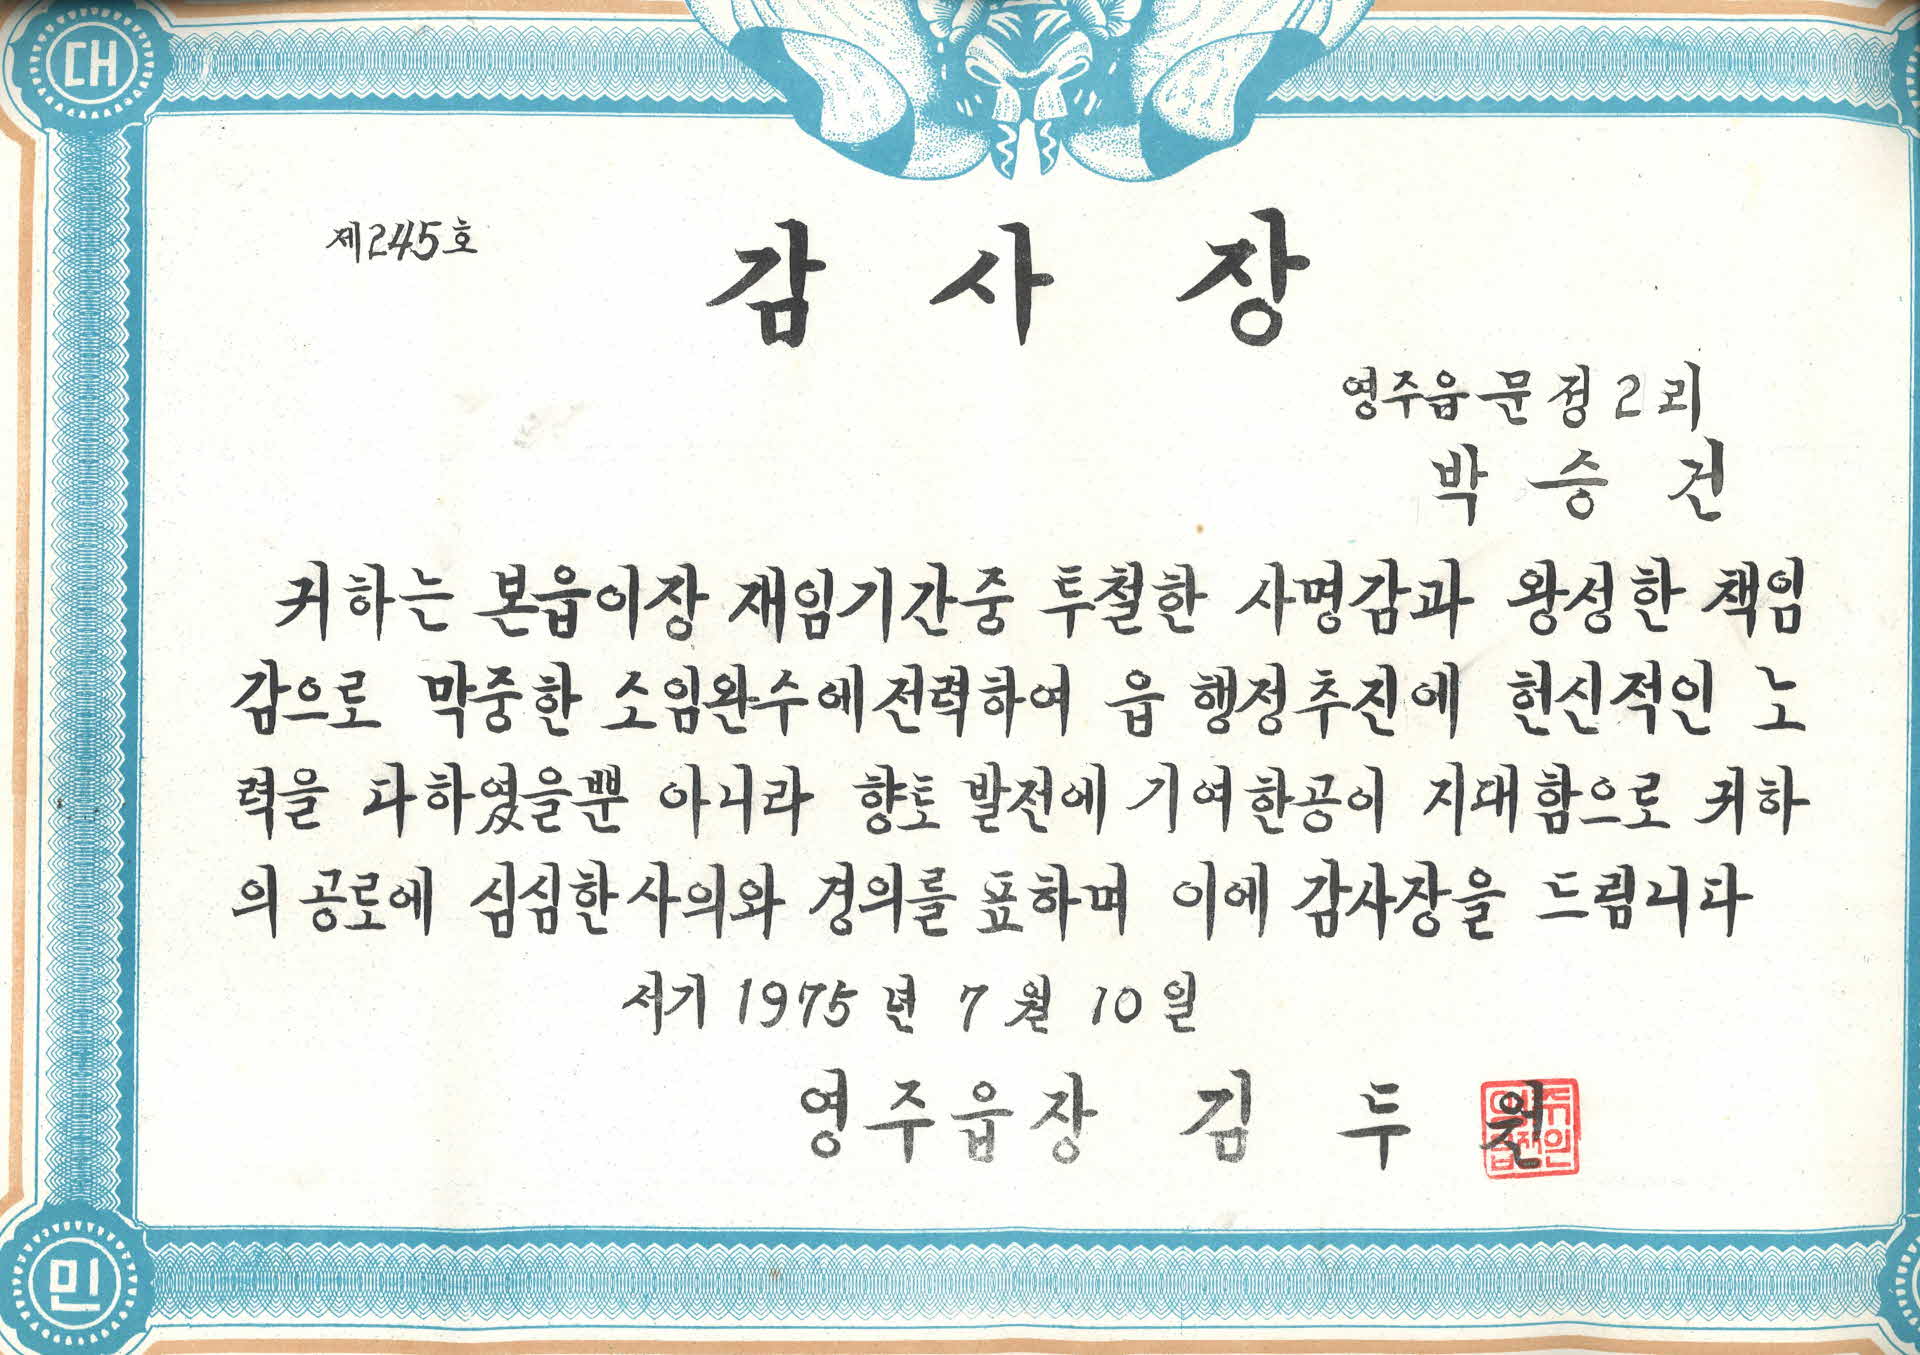 대
제245호
감사장
영주읍 문정2리
박승건
귀하는 본읍이장 재임기간중 투철한 사명감과 왕성한 책임
감으로 막중한 소임완수에전력하여 읍 행정추진에 헌신적인 노
력을 다하였을뿐 아니라 향토 발전에 기여한공이 지대함으로 귀하
의 공로에 심심한사의와 경의를 표하며 이에 감사장을 드립니다
서기 1975년 7월 10일
영주읍장 김두원
민